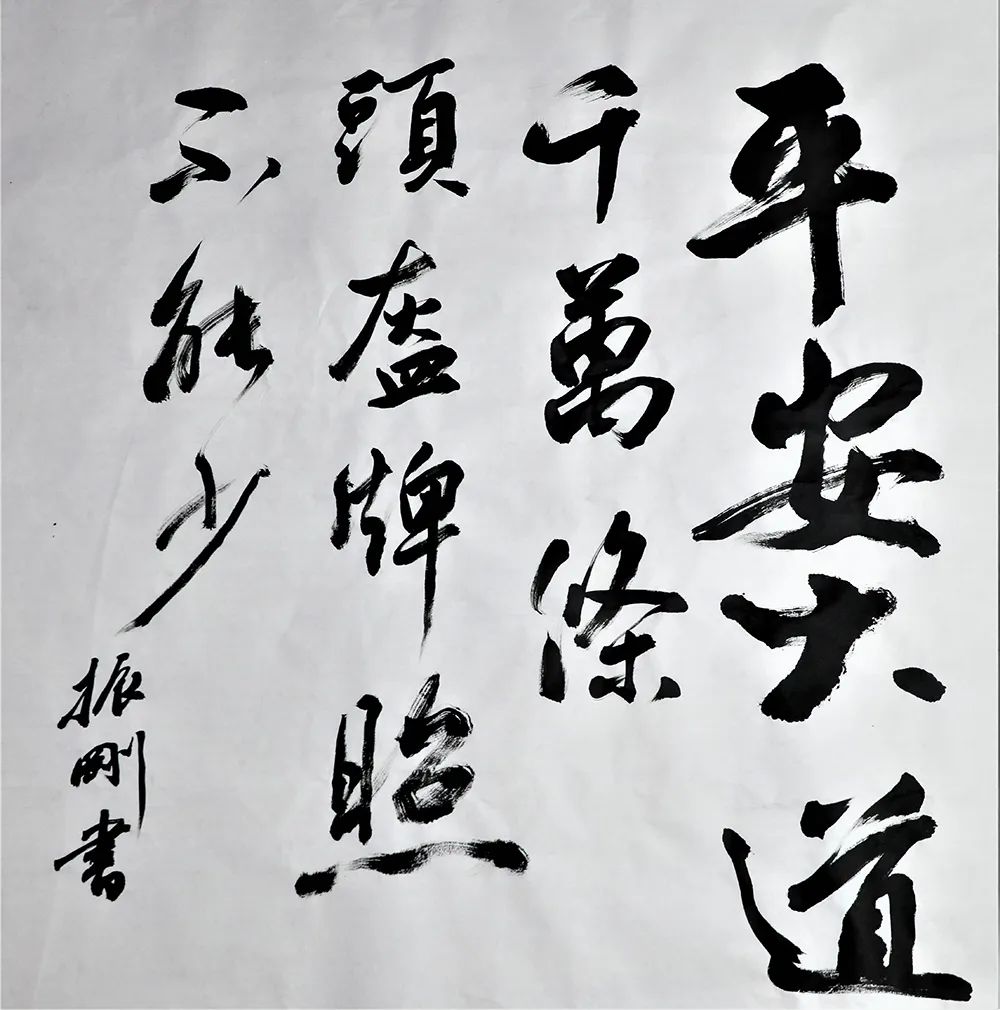 平安大道
千萬條
頭盔牌照
不能少
振剛書